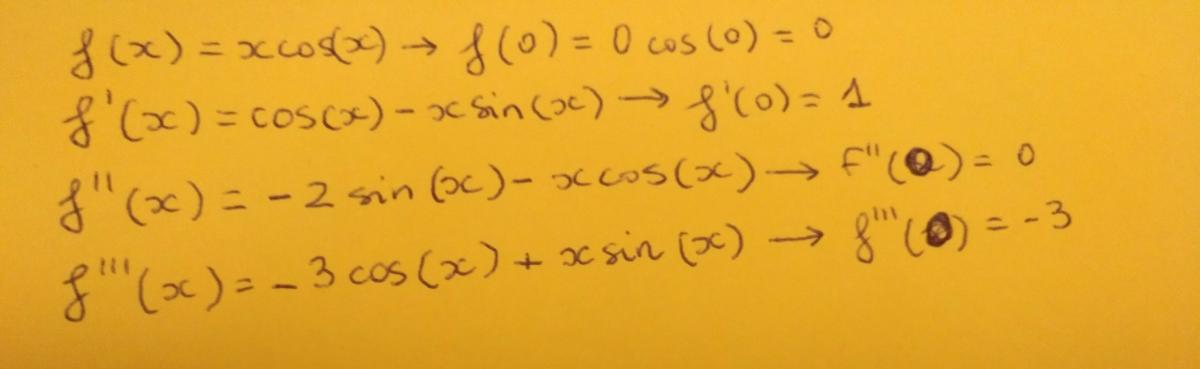 f(x) = xcos(x) → f(0) = 0 cos(0) = 0
f'(x) = cos(x) - x sin(x) → f'(0) = 1
f''(x) = -2 sin(x) - x cos(x) → F''(0) = 0
f'''(x) = -3 cos(x) + x sin(x) → f'''(0) = -3